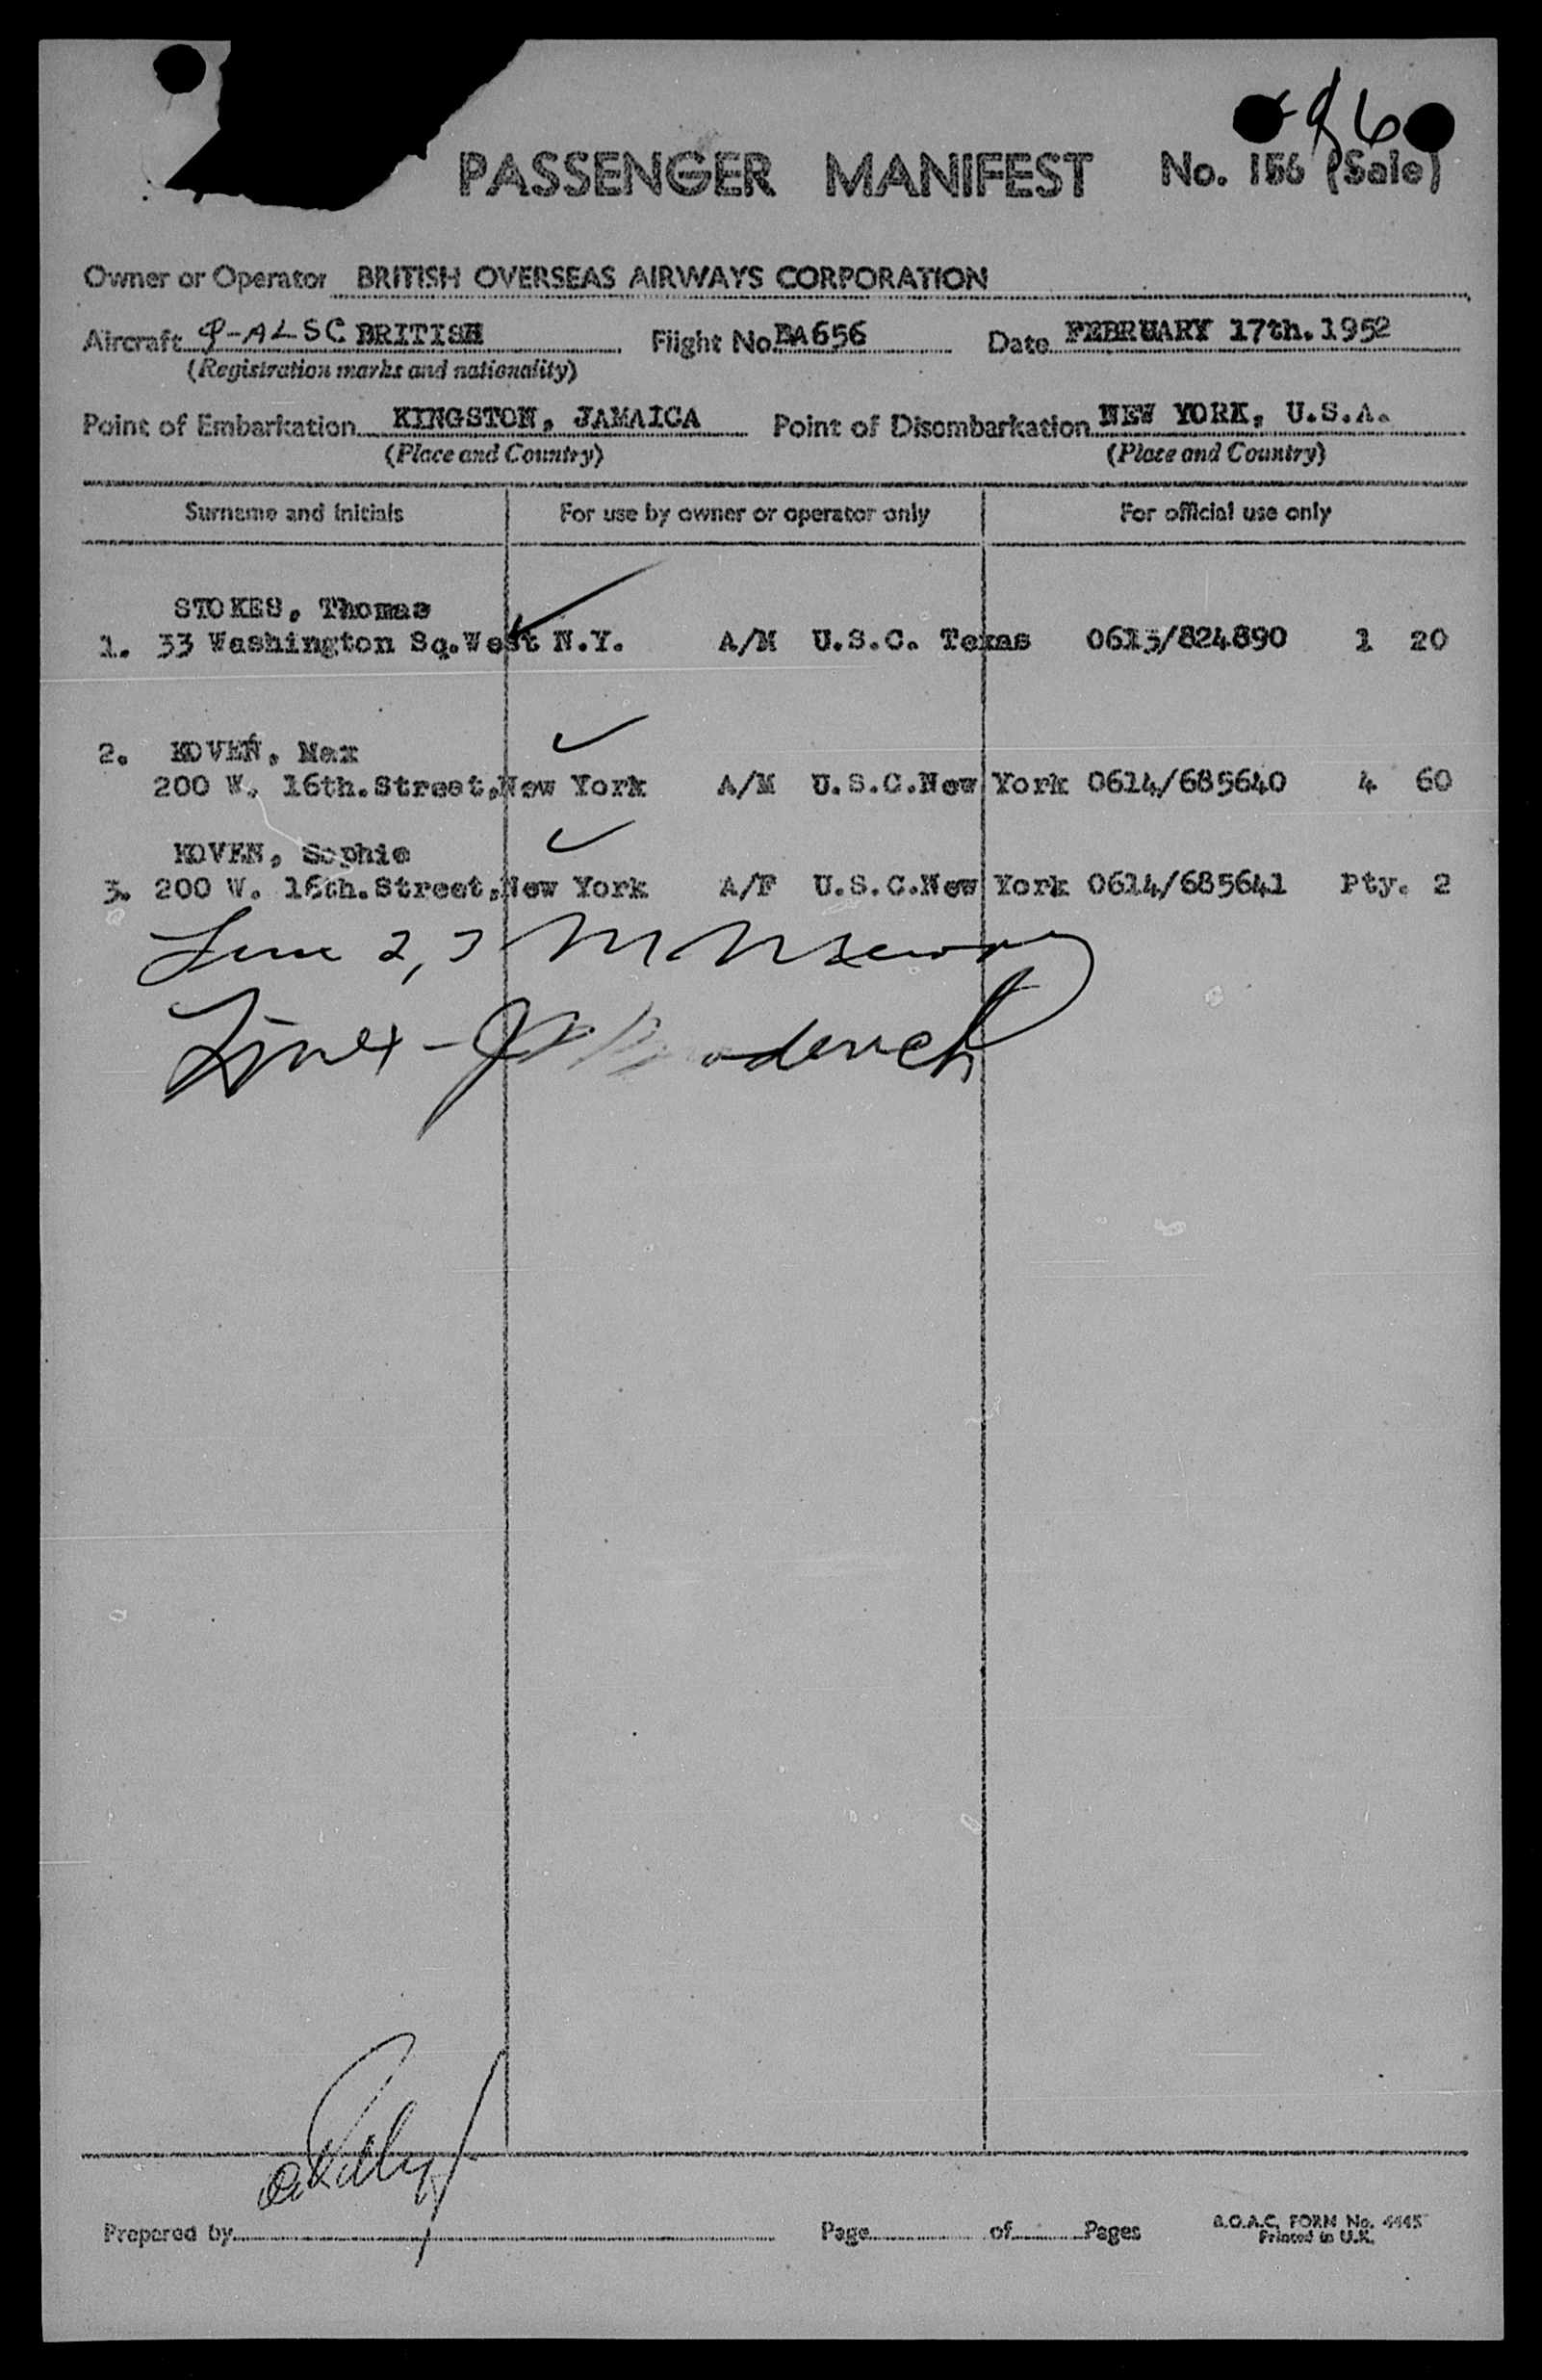 96
PASSENGER MANIFEST No. 156 (Sale)
Owner or Operator BRITISH OVERSEAS AIRWAYS CORPORATION
Aircraft G-ALSC BRITISH Flight No. BA656 Date FEBRUARY 17th.1952
(Registration marks and nationality)
Point of Embarkation KINGSTON, JAMAICA Point of Disembarkation NEW YORK, U.S.A.
(Place and Country) (Place and Country)
Surname and initials For use by owner or operator only For official use only
STOKES, Thomas
1. 33 Washington Sq.West N.Y. A/M U.S.C. Texas 0613/824890 1 20
2. KOVEN, Max
200 W. 16th.Street,New York A/M U.S.C.New York 0614/685640 4 60
KOVEN, Sophie
3. 200 W. 16th.Street,New York A/F U.S.C.New York 0614/685641 Pty. 2
Line 2,3
Line 1 -
Prepared by Page of Pages
B.O.A.C. FORM No. 4445
Printed in U.K.